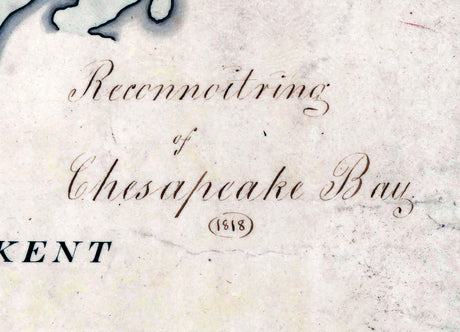 Reconnoitring
of
Chesapeake Bay
1818
KENT